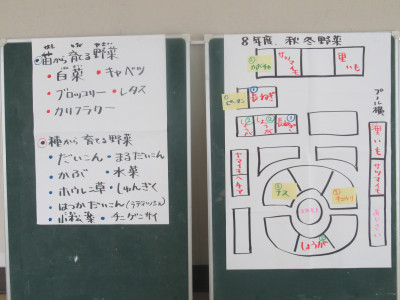 苗から育てる野菜
・白菜 ・キャベツ
・ブロッコリー ・レタス
・カリフラワー
種から育てる野菜
・だいこん ・まるだいこん
・かぶ ・水菜
・ホウレン草 ・しゅんぎく
・はつかだいこん(ラディッシュ)
・小松菜 ・チンゲンサイ
8年度、秋冬野菜
カボチャ
サツマイモ
里いも
ピーマン
長ねぎ
しょうが
長ねぎ
プール横
里いも
サツマイモ
ナス
しょうが